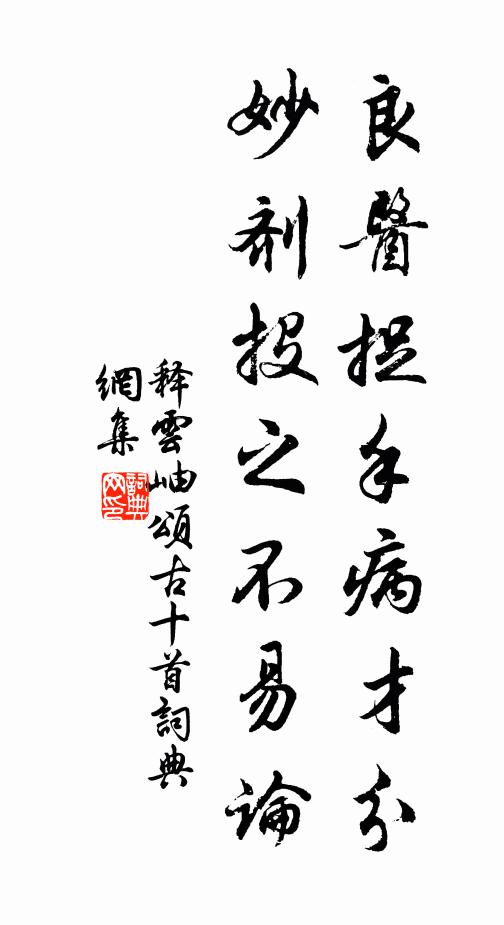 良醫捉手病才分
妙劑投之不易論
釋雲岫頌古十首詞典
網集
詞典
网印